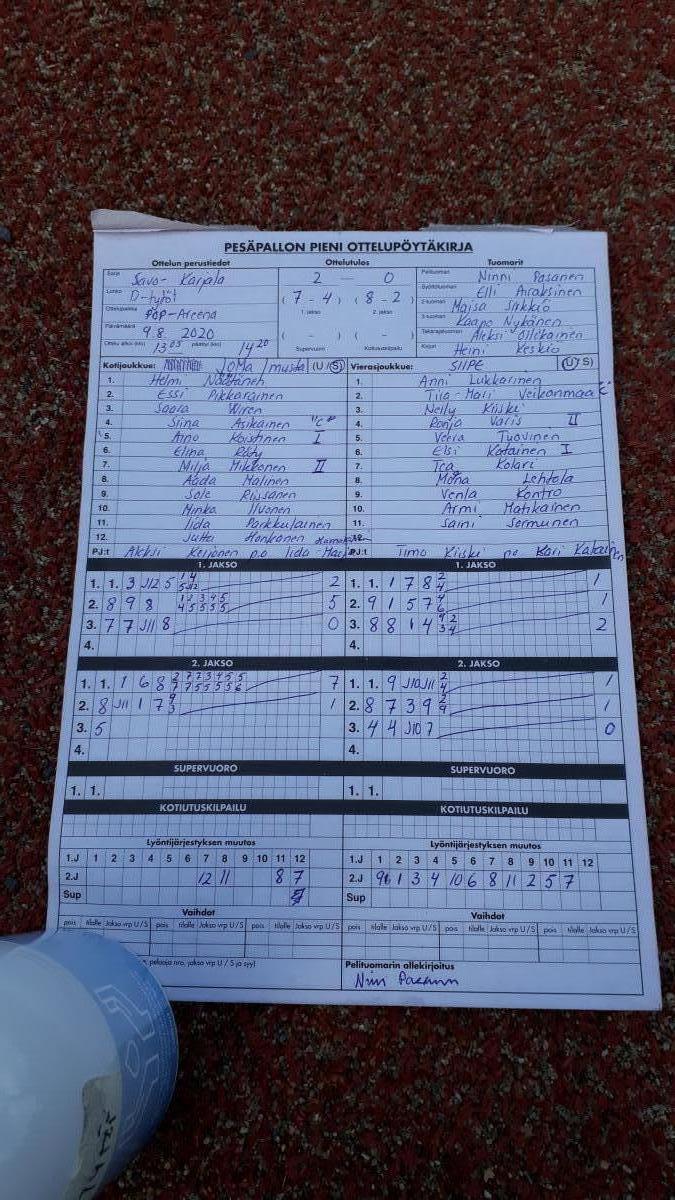 PESÄPALLON PIENI OTTELUPÖYTÄKIRJA
Ottelun perustiedot
Sarja Savo-Karjala
Lohko D-tytöt
Ottelupaikka POP-Areena
Päivämäärä 9.8. 2020
Ottelu alkoi (klo) 13 05 päättyi (klo) 14 20
Ottelutulos
2 — 0
( 7 - 4 ) ( 8 - 2 )
1. jakso 2. jakso
( - ) ( - )
Supervuoro Kotiutuskilpailu
Tuomarit
Pelituomari Ninni Pasanen
Syöttötuomari Elli Airaksinen
2-tuomari Maisa Sirkkiö
3-tuomari Kaapo Nykänen
Takarajatuomari Aleksi Ollikainen
Kirjuri Heini Keskio
Kotijoukkue: JoMa /musta (U / S)
1. Helmi Näätänen
2. Essi Pikkarainen
3. Saara Wiren
4. Siina Asikainen "C"
5. Aino Koistinen I
6. Elina Räty
7. Milja Mikkonen II
8. Aada Malinen
9. Sole Rissanen
10. Minka Iivonen
11. Iida Parkkulainen
12. Jutta Honkonen
PJ:t Aleksi Kerjonen p.o Iida
Vierasjoukkue: SIIPE (U / S)
1. Anni Lukkarinen
2. Tiia-Mari Veikanmaa "C"
3. Nelly Kiiski
4. Ronja Varis II
5. Veera Tuovinen
6. Elsi Katainen I
7. Tea Kolari
8. Mona Lehtola
9. Venla Kontro
10. Armi Matikainen
11. Saini Sermunen
12.
PJ:t Timo Kiiski po Kari Katainen
1. JAKSO
1. 1. 3 J12 5 1/5 4/J12 2
2. 8 9 8 1/4 2/5 3/5 4/5 5/5 5
3. 7 7 J11 8 0
4.
1. JAKSO
1. 1. 1 7 8 2/4 1
2. 9 1 5 7 4/6 1
3. 8 8 1 4 9/3 2/4 2
4.
2. JAKSO
1. 1. 1 6 8 2/7 7/7 2/5 3/5 4/5 5/5 5/6 7
2. 8 J11 1 7 9/3 1
3. 5
4.
2. JAKSO
1. 1. 9 J10 J11 2/4 1
2. 8 7 3 9 2/9 1
3. 4 4 J10 7 0
4.
SUPERVUORO
1. 1.
SUPERVUORO
1. 1.
KOTIUTUSKILPAILU
KOTIUTUSKILPAILU
Lyöntijärjestyksen muutos
1.J 1 2 3 4 5 6 7 8 9 10 11 12
2.J 12 11 8 7
Sup
Lyöntijärjestyksen muutos
1.J 1 2 3 4 5 6 7 8 9 10 11 12
2.J 9 1 3 4 10 6 8 11 2 5 7
Sup
Vaihdot
pois tilalle Jakso vrp U / S pois tilalle Jakso vrp U / S pois tilalle Jakso vrp U / S
Vaihdot
pois tilalle Jakso vrp U / S pois tilalle Jakso vrp U / S pois tilalle Jakso vrp U / S
pelaaja nro, jakso vrp U / S ja syy)
Pelituomarin allekirjoitus